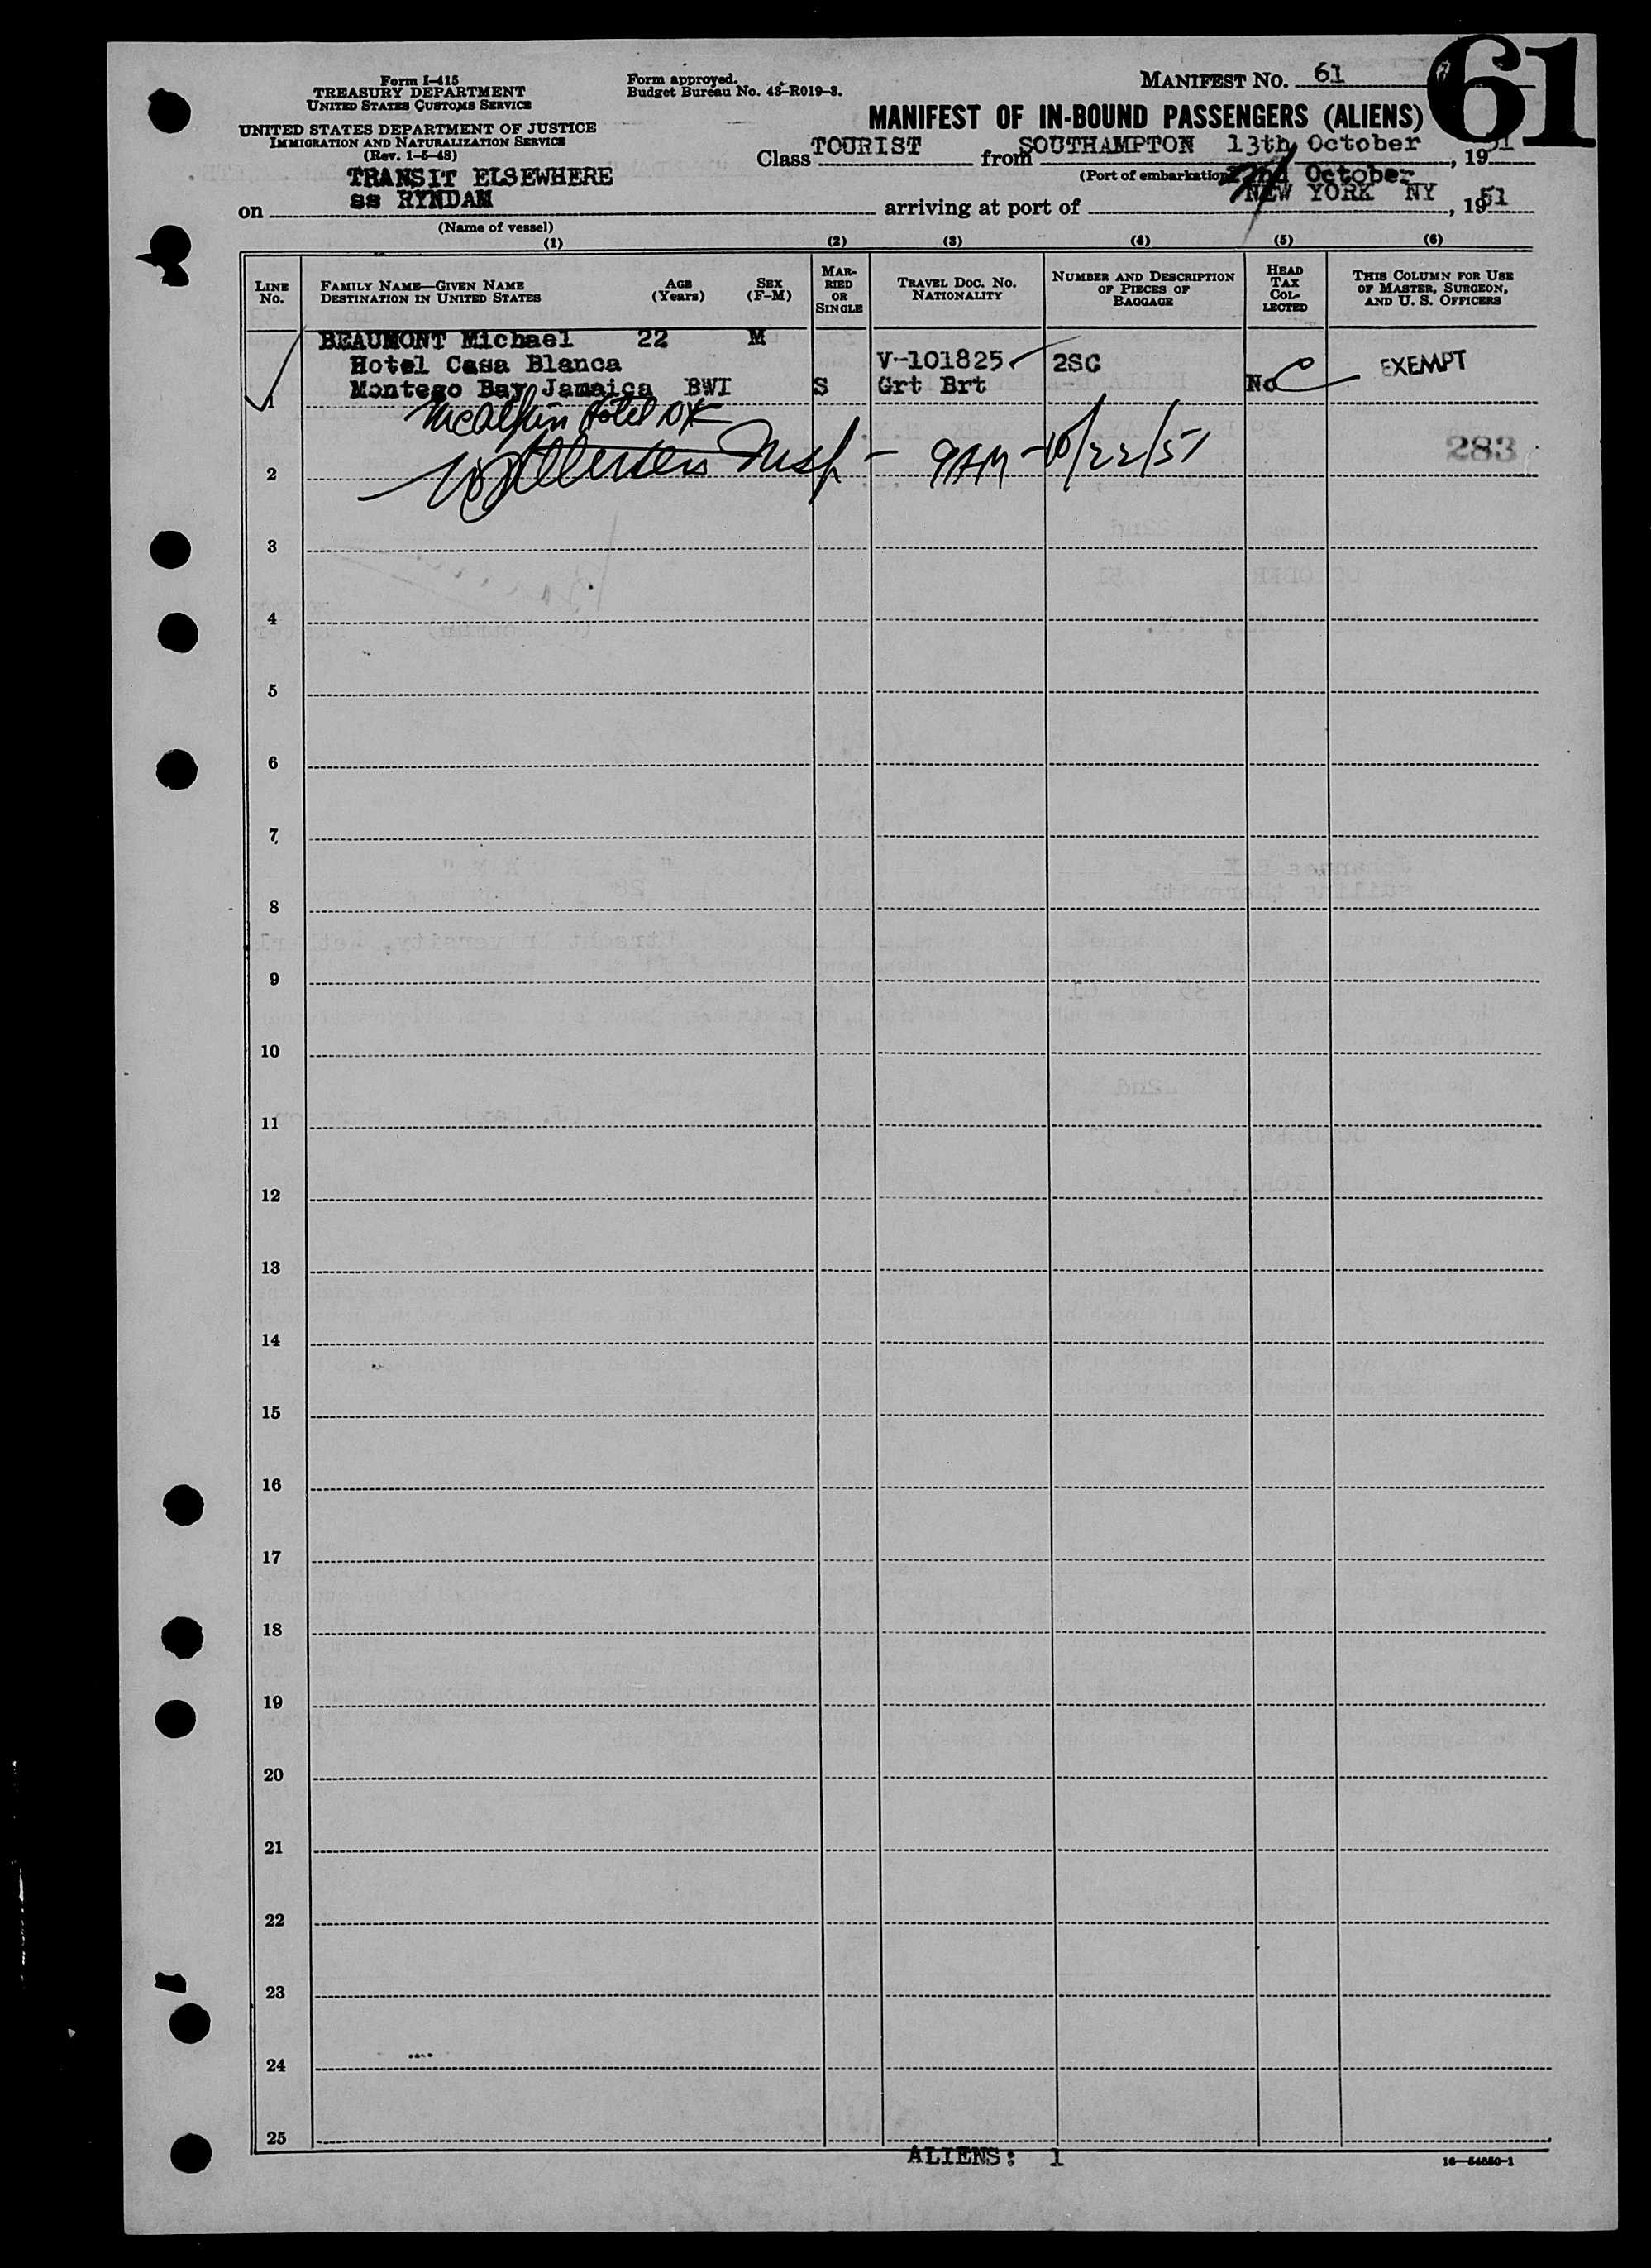 Form I-415
TREASURY DEPARTMENT
UNITED STATES CUSTOMS SERVICE
UNITED STATES DEPARTMENT OF JUSTICE
IMMIGRATION AND NATURALIZATION SERVICE
(Rev. 1-5-48)
Form approved.
Budget Bureau No. 43-R019-3.
MANIFEST NO. 61
61
MANIFEST OF IN-BOUND PASSENGERS (ALIENS)
Class TOURIST from SOUTHAMPTON 13th October, 1951
(Port of embarkation)
TRANSIT ELSEWHERE
October
on ss RYNDAM arriving at port of NEW YORK NY, 1951
(Name of vessel)
(1) (2) (3) (4) (5) (6)
LINE NO.
FAMILY NAME—GIVEN NAME
DESTINATION IN UNITED STATES
AGE (Years)
SEX (F-M)
MARRIED OR SINGLE
TRAVEL DOC. NO.
NATIONALITY
NUMBER AND DESCRIPTION OF PIECES OF BAGGAGE
HEAD TAX COLLECTED
THIS COLUMN FOR USE OF MASTER, SURGEON, AND U. S. OFFICERS
BEAUMONT Michael 22 M
Hotel Casa Blanca V-101825 2SC EXEMPT
1 Montego Bay Jamaica BWI S Grt Brt No
McAlpin Hotel NY
283
2 Insp - 9AM - 10/22/51
3
4
5
6
7
8
9
10
11
12
13
14
15
16
17
18
19
20
21
22
23
24
25
ALIENS: 1
16—54650-1